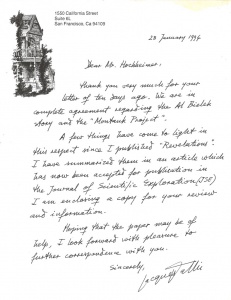 1550 California Street
Suite 6L
San Francisco, CA 94109
23 January 1994
Dear Mr. Hochheimer:
Thank you very much for your
letter of ten days ago. We are in
complete agreement regarding the Al Bielek
story and the "Montauk Project".
A few things have come to light in
this respect since I published "Revelations".
I have summarized them in an article which
has now been accepted for publication in
the Journal of Scientific Exploration (JSE)
I am enclosing a copy for your review
and information.
Hoping that the paper may be of
help, I look forward with pleasure to
further correspondence with you.
Sincerely,
Jacques Vallée